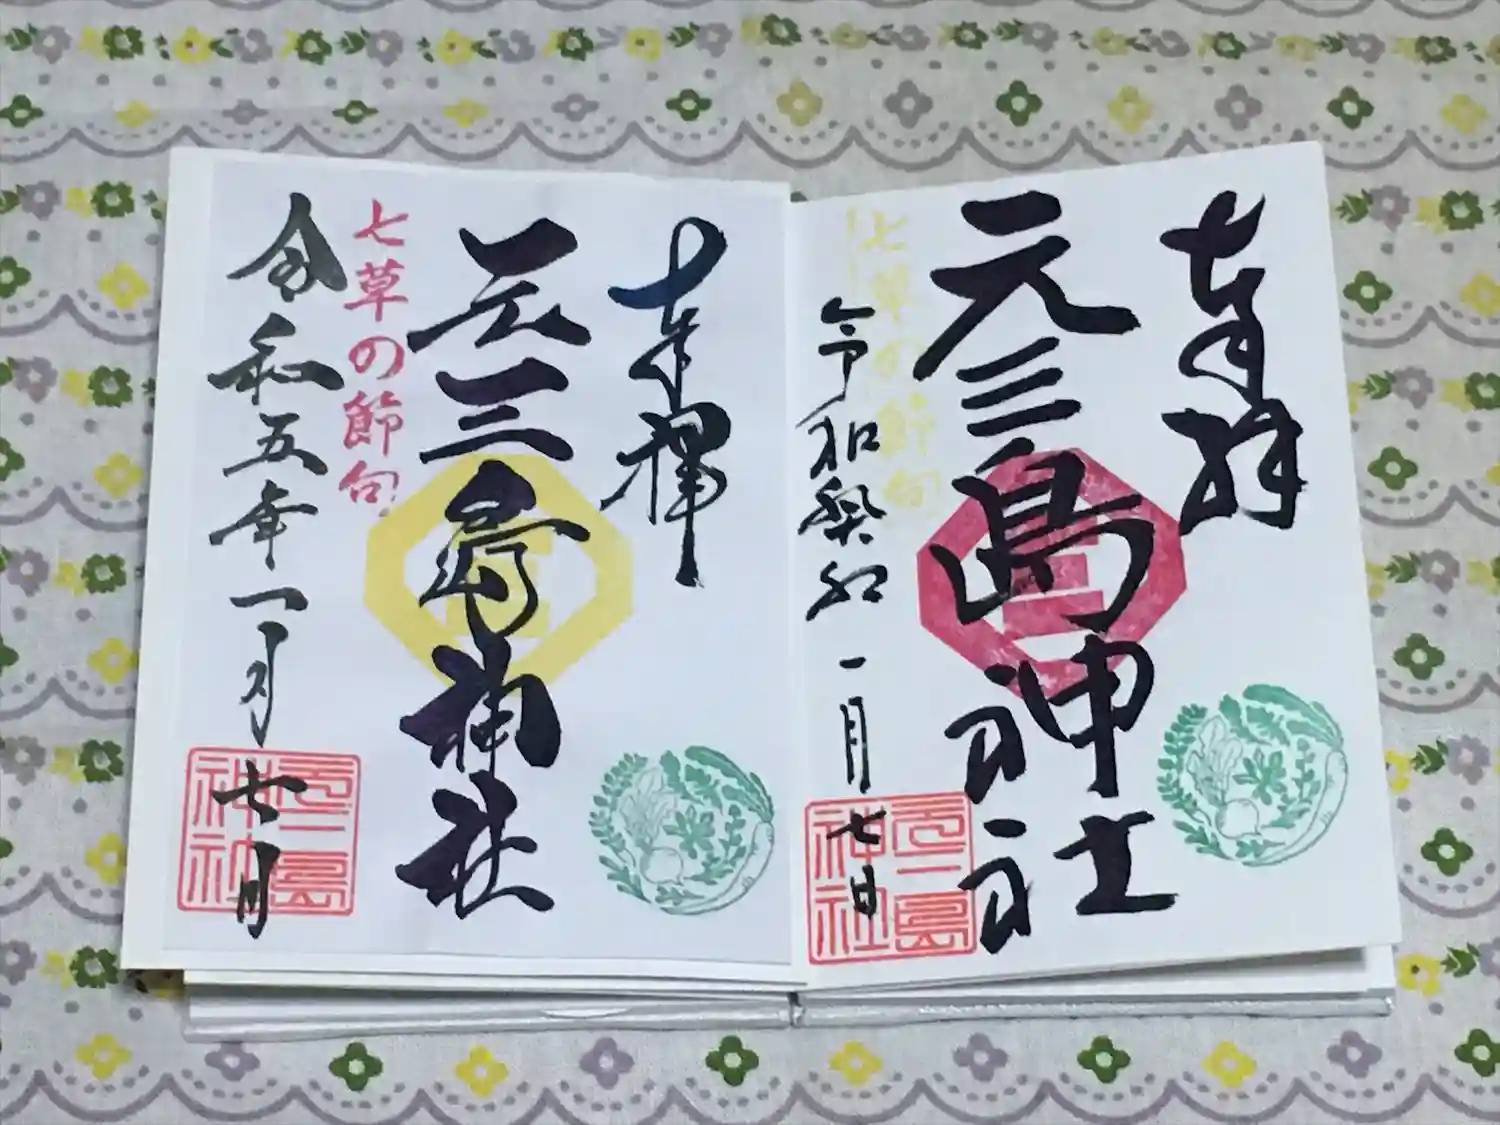 奉拝
元三島神社
七草の節句
令和癸卯 一月七日
元三島
神社
奉拝
元三島神社
七草の節句
令和五年一月七日
元三島
神社